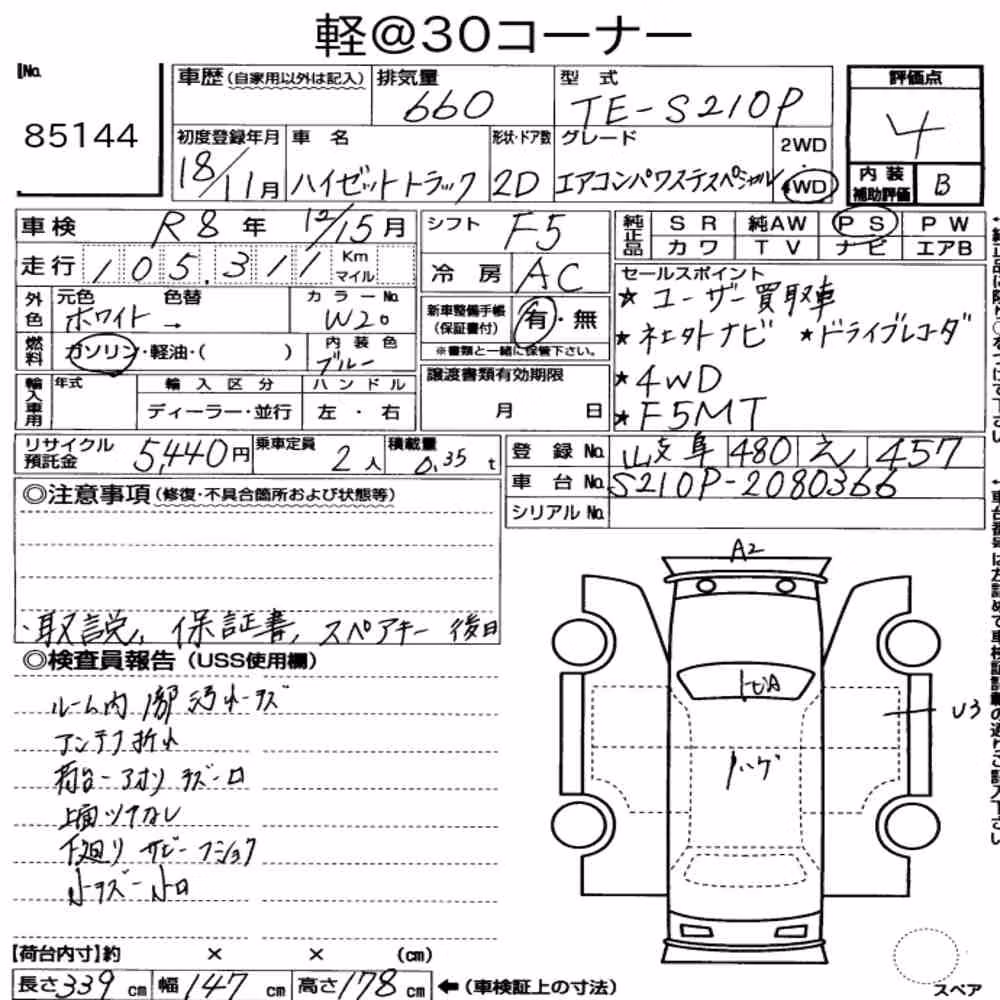 軽@30コーナー
No.
85144
車歴(自家用以外は記入)
排気量
660
型式
TE-S210P
評価点
4
初度登録年月
18/11月
車名
ハイゼットトラック
形状・ドア数
2D
グレード
エアコンパワステスペシャル
2WD
・
4WD
内装
補助評価
B
車検 R8年 12/15月
走行 105,311 Km
マイル
シフト F5
冷房 AC
純正品
SR 純AW PS PW
カワ TV ナビ エアB
外色
元色 色替 カラーNo.
ホワイト → W20
燃料
ガソリン・軽油・( )
内装色
ブルー
新車整備手帳
(保証書付)
有・無
※書類と一緒に保管下さい。
セールスポイント
★ユーザー買取車
★社外ナビ ★ドライブレコーダ
★4WD
★F5MT
輸入車用
年式 輸入区分 ハンドル
ディーラー・並行 左・右
譲渡書類有効期限
月 日
リサイクル
預託金
5,440円
乗車定員
2人
積載量
0.35t
登録No. 岐阜 480 え 457
車台No. S210P-2080366
シリアルNo.
◎注意事項(修復・不具合箇所および状態等)
・取説、保証書、スペアキー 後日
◎検査員報告(USS使用欄)
ルーム内 1部汚れキズ
アンテナ折れ
荷台ーアオリ キズー凹
上面ツヤなし
下廻り サビーフショク
小キズー小凹
A2
トビA
ハゲ
U3
スペア
【荷台内寸】約 × × (cm)
長さ339cm 幅147cm 高さ178cm ←(車検証上の寸法)